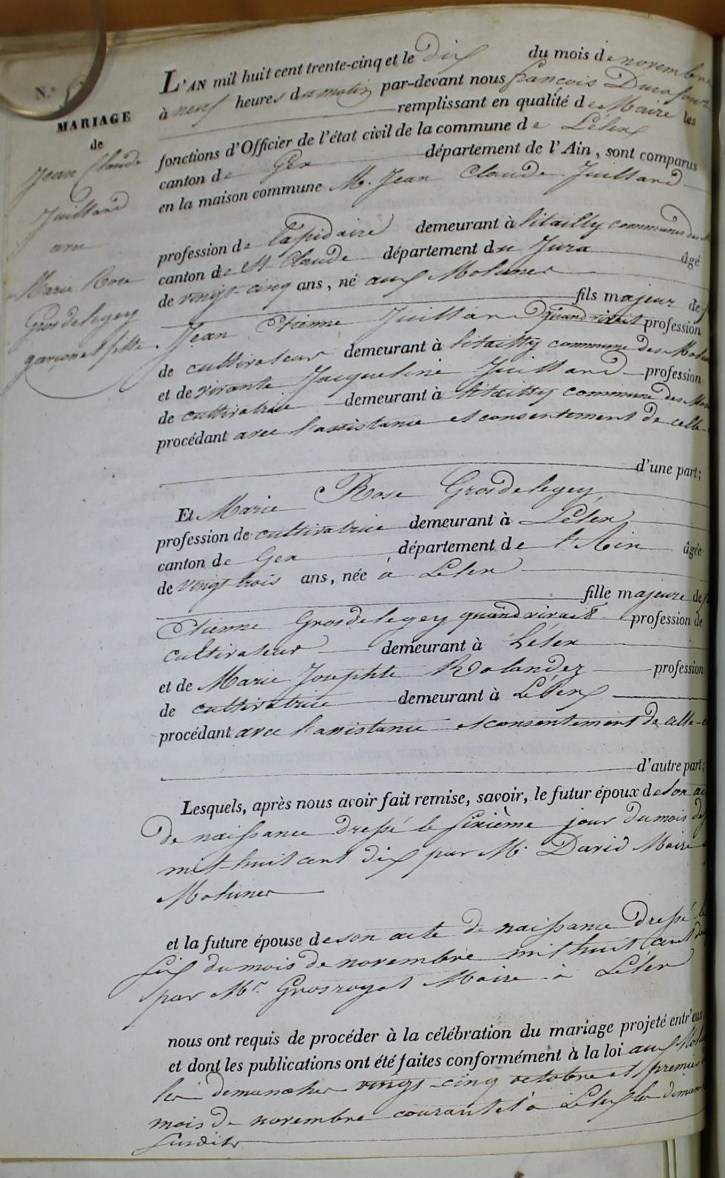 N.°
MARIAGE
de
Jean Claude
Juillard
avec
Marie Rose
Grosdelegey
garçon et fille
L'AN mil huit cent trente-cinq et le dix du mois de novembre
à neuf heures du matin par-devant nous françois Durafour
remplissant en qualité de Maire les
fonctions d'Officier de l'état civil de la commune de Lélex
canton de Gex département de l'Ain, sont comparus
en la maison commune M. Jean Claude Juillard
profession de Lapidaire demeurant à commune des
canton de St Claude département du Jura âgé
de vingt cinq ans, né aux Molunes
fils majeur de
Jean Etienne Juillard quand vivait profession
de cultivateur demeurant à commune des
et de vivante Jacqueline Juillard profession
de cultivatrice demeurant à commune des
procédant avec l'assistance et consentement de celle-
d'une part;
Et Marie Rose Grosdelegey
profession de cultivatrice demeurant à Lélex
canton de Gex département de l'Ain âgée
de vingt trois ans, née à Lelex
fille majeure de
Etienne Grosdelegey quand vivait profession de
cultivateur demeurant à Lelex
et de Marie Josephte Rolandez profession
de cultivatrice demeurant à Lélex
procédant avec l'assistance et consentement de celle-
d'autre part;
Lesquels, après nous avoir fait remise, savoir, le futur époux de son
de naissance dressé le sixième jour du mois de
mil-huit cent dix par Mr. David Maire
Molunes
et la future épouse de son acte de naissance dressé le
six du mois de novembre mil huit cent
par Mr. Grosroyat Maire à Lélex
nous ont requis de procéder à la célébration du mariage projeté entr'eux
et dont les publications ont été faites conformément à la loi aux
les dimanches vingt-cinq octobre et premier
mois de novembre courant et à Lélex les
susdits